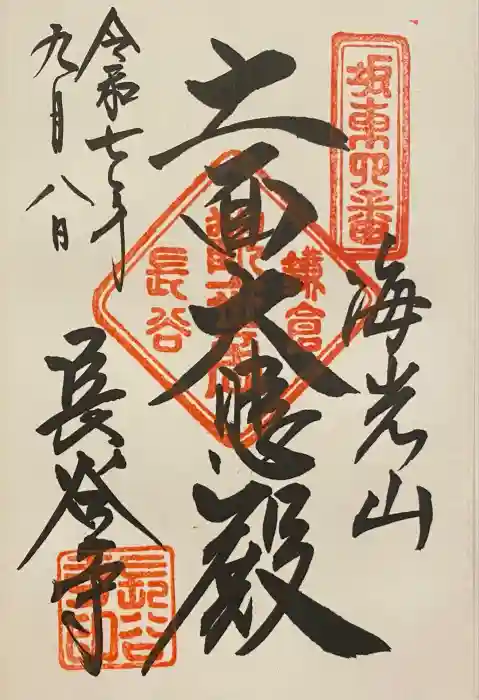 坂東四番
海光山
十一面大悲殿
鎌倉
長谷
令和七年
九月八日
長谷寺
長谷
寺印